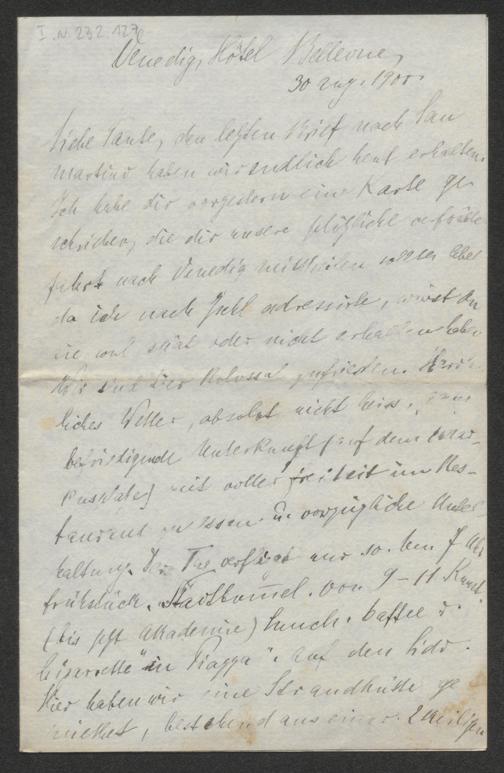 I.N. 232.127
Venedig, Hôtel Bellevue,
30 Aug. 1900.
Liebe Tante, den letzten Brief nach San
Martino haben wir endlich heut erhalten.
Ich habe dir vorgestern eine Karte ge
schrieben, die dir unsere plötzliche verfrühte
fahrt nach Venedig mittheilen sollte; aber
da ich nach Ischl adressirte, wirst du
sie wol spät oder nicht erhalten haben
Wir sind hier kolossal zufrieden. Herr
liches Wetter, absolut nicht heiss,
befriedigende Unterkunft (auf dem Mar-
cusplatz) mit voller freiheit im Res-
taurant zu essen u vorzügliche Unter
haltung. Der Tag verfliegt nur so. Um 7 Uhr
frühstück. Stadtbummel. von 9 – 11 Kunst
(bis jetzt Akademie) Lunch. Caffee u.
Cigarrette "in Piazza". auf den Lido.
Hier haben wir eine Strandhütte ge
miethet, bestehend aus einer 2 theiligen